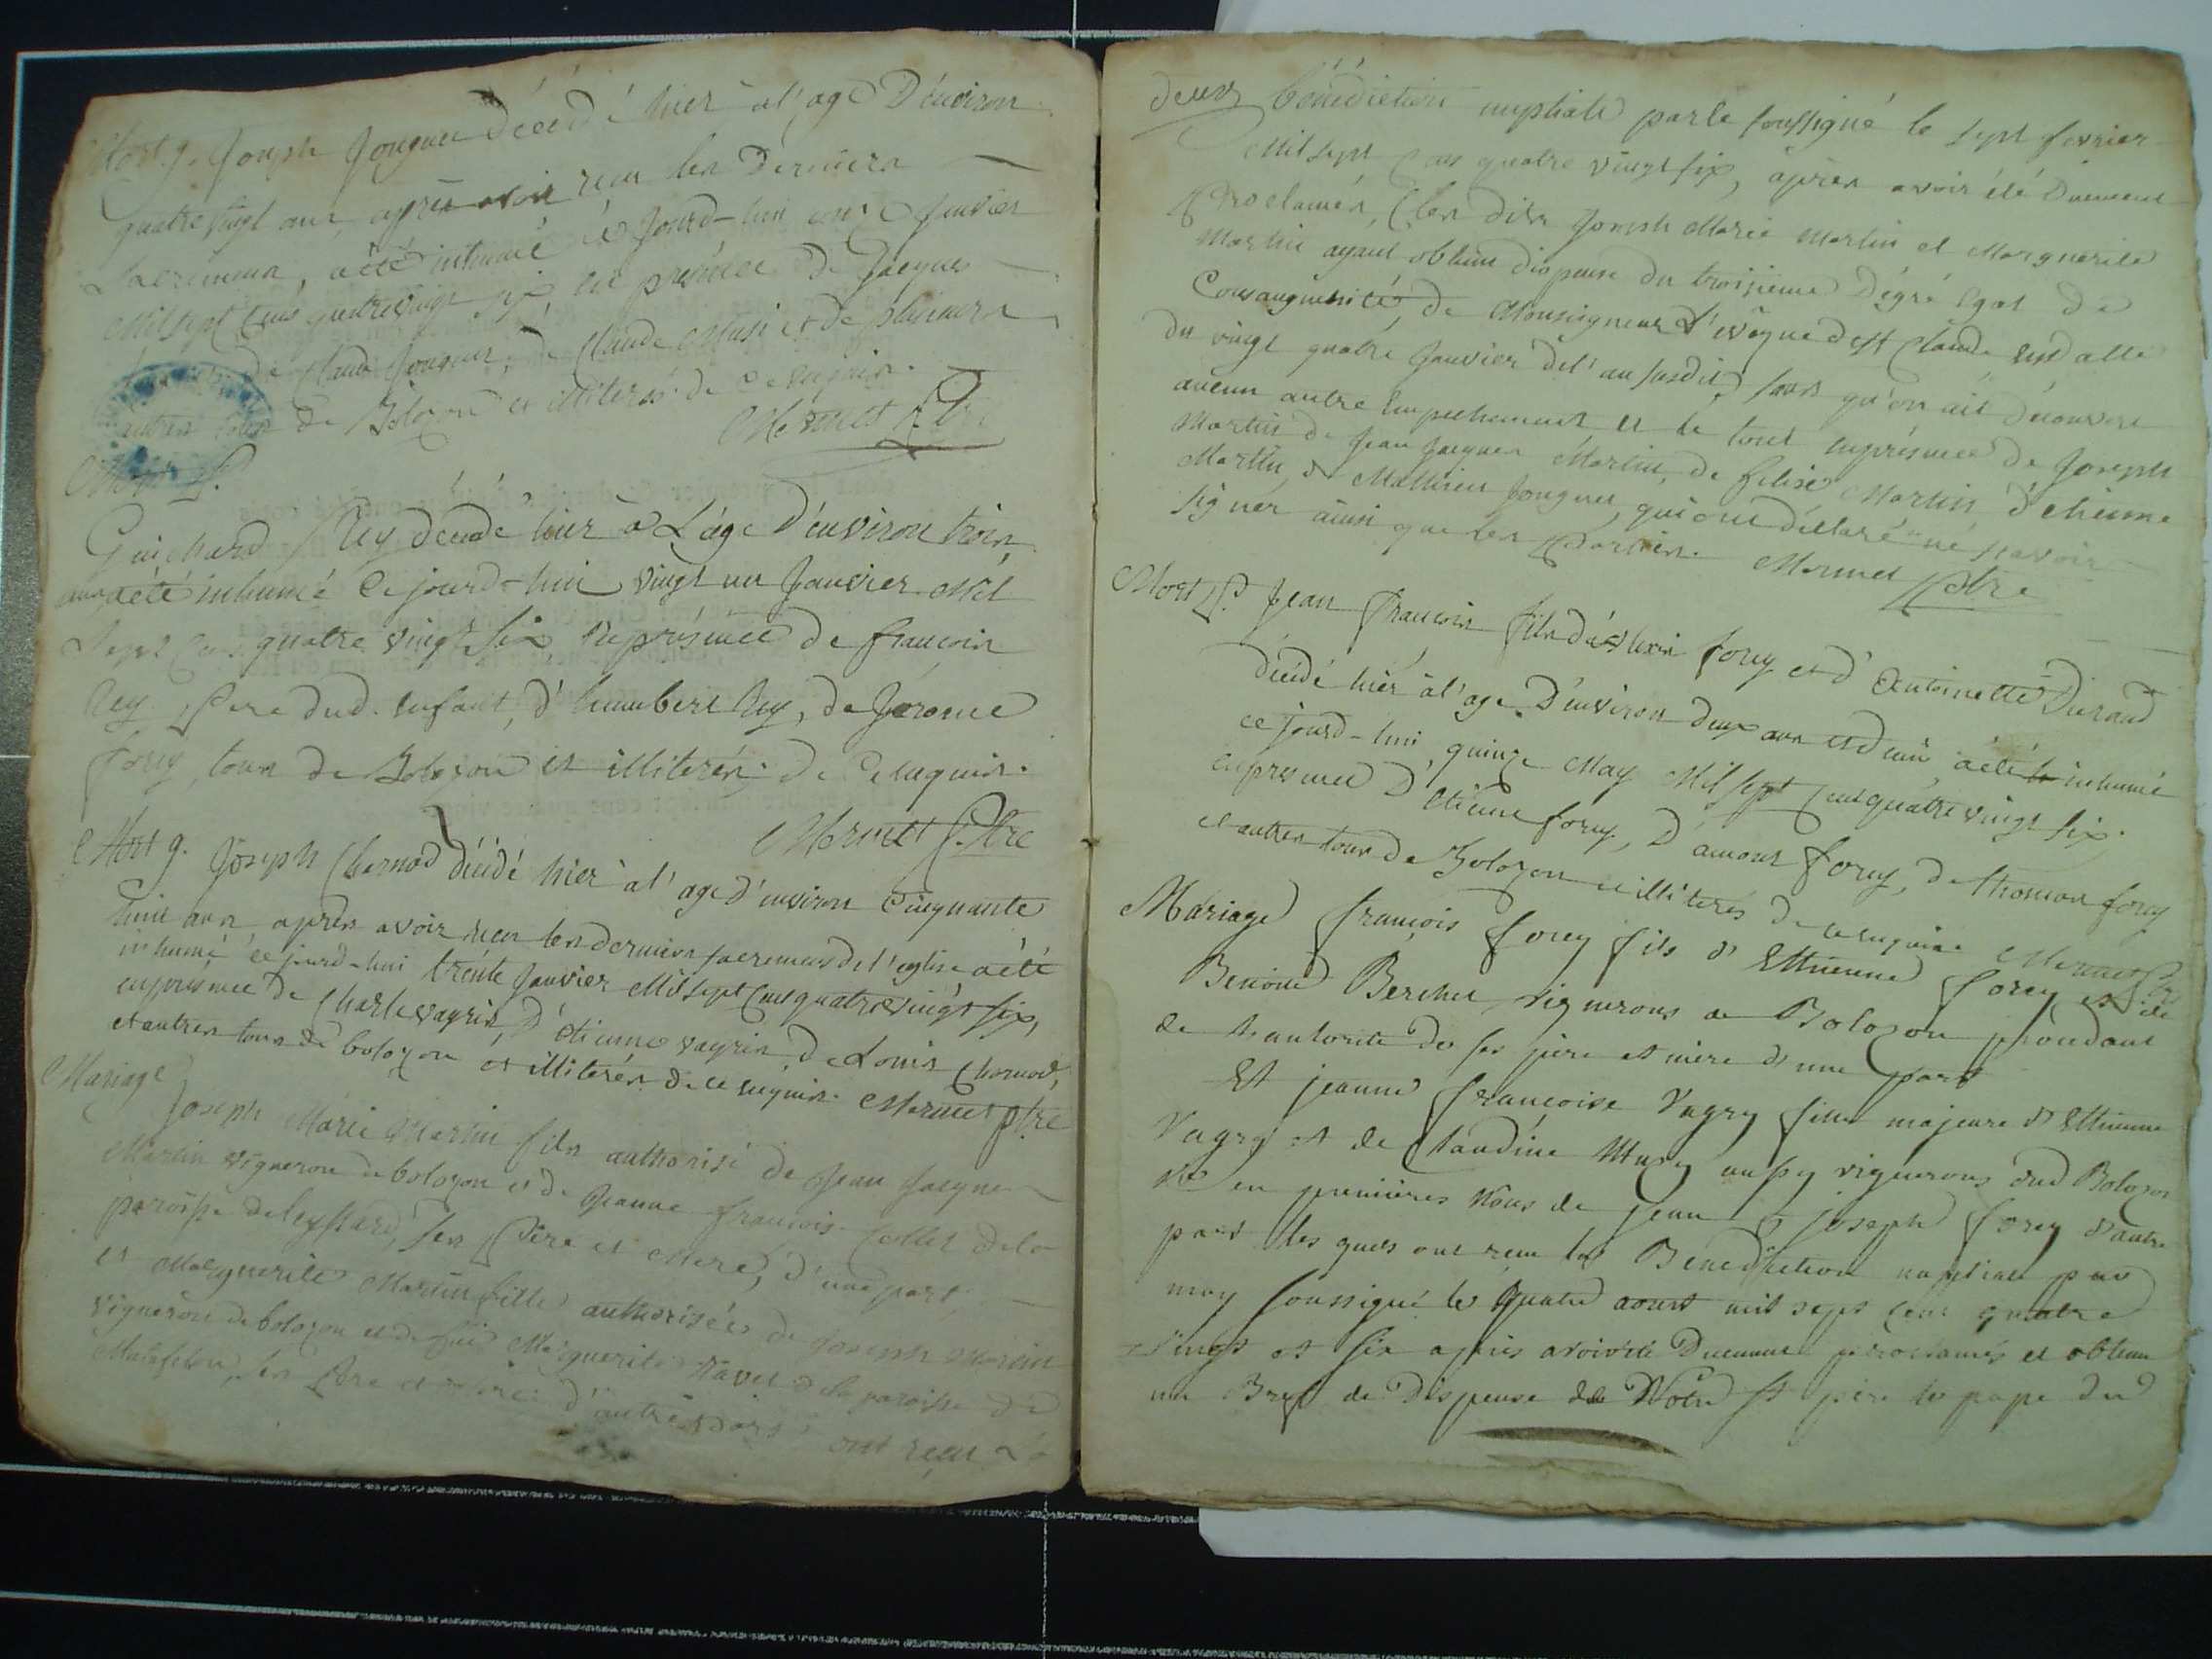 Mort g. Joseph Jougner décédé hier a l'age D'environ
quatrevingt ans, aprés avoir reçu les Derniers
Sacremens, a été inhumé ce Jourd-hui onze Janvier
Mil sept Cens quatrevingt six, en présence de Jacques
de Claude Jougner, de Claude Musi et de plusieurs
autres tous de Bolozon et illiterés de ce enquis.
Mermet Ptre
Mort P.
Guichard Rey décédé hier a L'age D'environ trois
ans a été inhumé Ce jourd-hui vingt un Janvier Mil
Sept Cens quatre vingt six, En présence de francois
Rey Pere dud. enfant, d'humbert Rey, de Jérome
forey tous de Bolozon et illiterés de ce enquis.
Mermet Ptre
Mort g. Joseph Chernod décidé hier a l'age d'environ Cinquante
huit ans aprés avoir reçu les derniers sacremens de l'eglise a été
inhumé ce jourd-hui trente Janvier Mil sept Cens quatrevingt six,
en présence de Charle vagris, D'étienne vagris, de Louis Chernod,
et autres tous de bolozon et illiterés de ce enquis. Mermet ptre
Mariage
Joseph Marie Martin fils authorisé de Jean Jacques
Martin vigneron de bolozon et de Jeanne francoise Collet de la
paroisse de leyssard, ses Père et Mere, d'une part,
et Marguerite Martin fille authorisée de Joseph Martin
vigneron de bolozon et de fuë Marguerite Ravet de la paroisse de
Matafelon, ses Père et mere d'autre part ont reçu La
deux bénédiction nuptiale par le soussigné le sept fevrier
Mil sept Cens quatre vingt six, aprés avoir été Duement
Proclamés, Les dits Joseph Marie Martin et Marguerite
Martin ayant obtenu dispense du troisieme Dégré égal de
Consanguinité, de Monseigneur L'evêque de St Claude, en datte
du vingt quatre Janvier de l'an susdit, sans qu'on ait découvert
aucun autre Empechement et le tout en présence de Joseph
Martin de Jean Jacques Martin, de felise Martin, d'etienne
Martin, & Mathieu Jougner, qui ont déclaré ne sçavoir
signér ainsi que les Parties. Mermet Ptre
Mort P. Jean francois fils d'alexis forey et d'Antoinette Durand
décédé hier a l'age D'environ deux ans et demi, a été inhumé
ce jourd-hui, quinze May Mil sept Cens quatre vingt six.
en présence D'étienne forey, D'amour forey, de thomas forey
et autres tous de Bolozon et illiterés de ce enquise Mermet Ptre
Mariage françois forey fils d'Ettienne forey et de
Benoite Berchet vignerons a Bolozon procedant
de l'autorite de ses père et mère d'une part
Et jeanne françoise Vagry fille majeure d'Ettienne
Vagry et de Claudine Musy aussy vignerons dud Bolozon
Ve en premières Nôces de jean joseph forey d'autre
part les quels ont reçu la Bénédiction nuptiale par
moy soussigné le quatre aoust mil sept cent quatre
vingt et six aprés avoir été Duement proclamés et obtenu
un Bref de Dispense de Notre St père le pape du